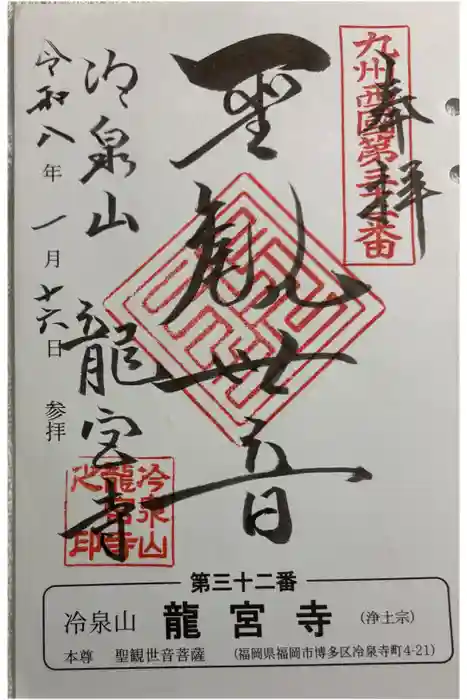 奉拝
九州西國第三十二番
聖観世音
冷泉山 龍宮寺
令和八年 一月 十六日 参拝
冷泉山
龍宮寺
之印
第三十二番
冷泉山 龍宮寺 (浄土宗)
本尊 聖観世音菩薩 (福岡県福岡市博多区冷泉寺町4-21)